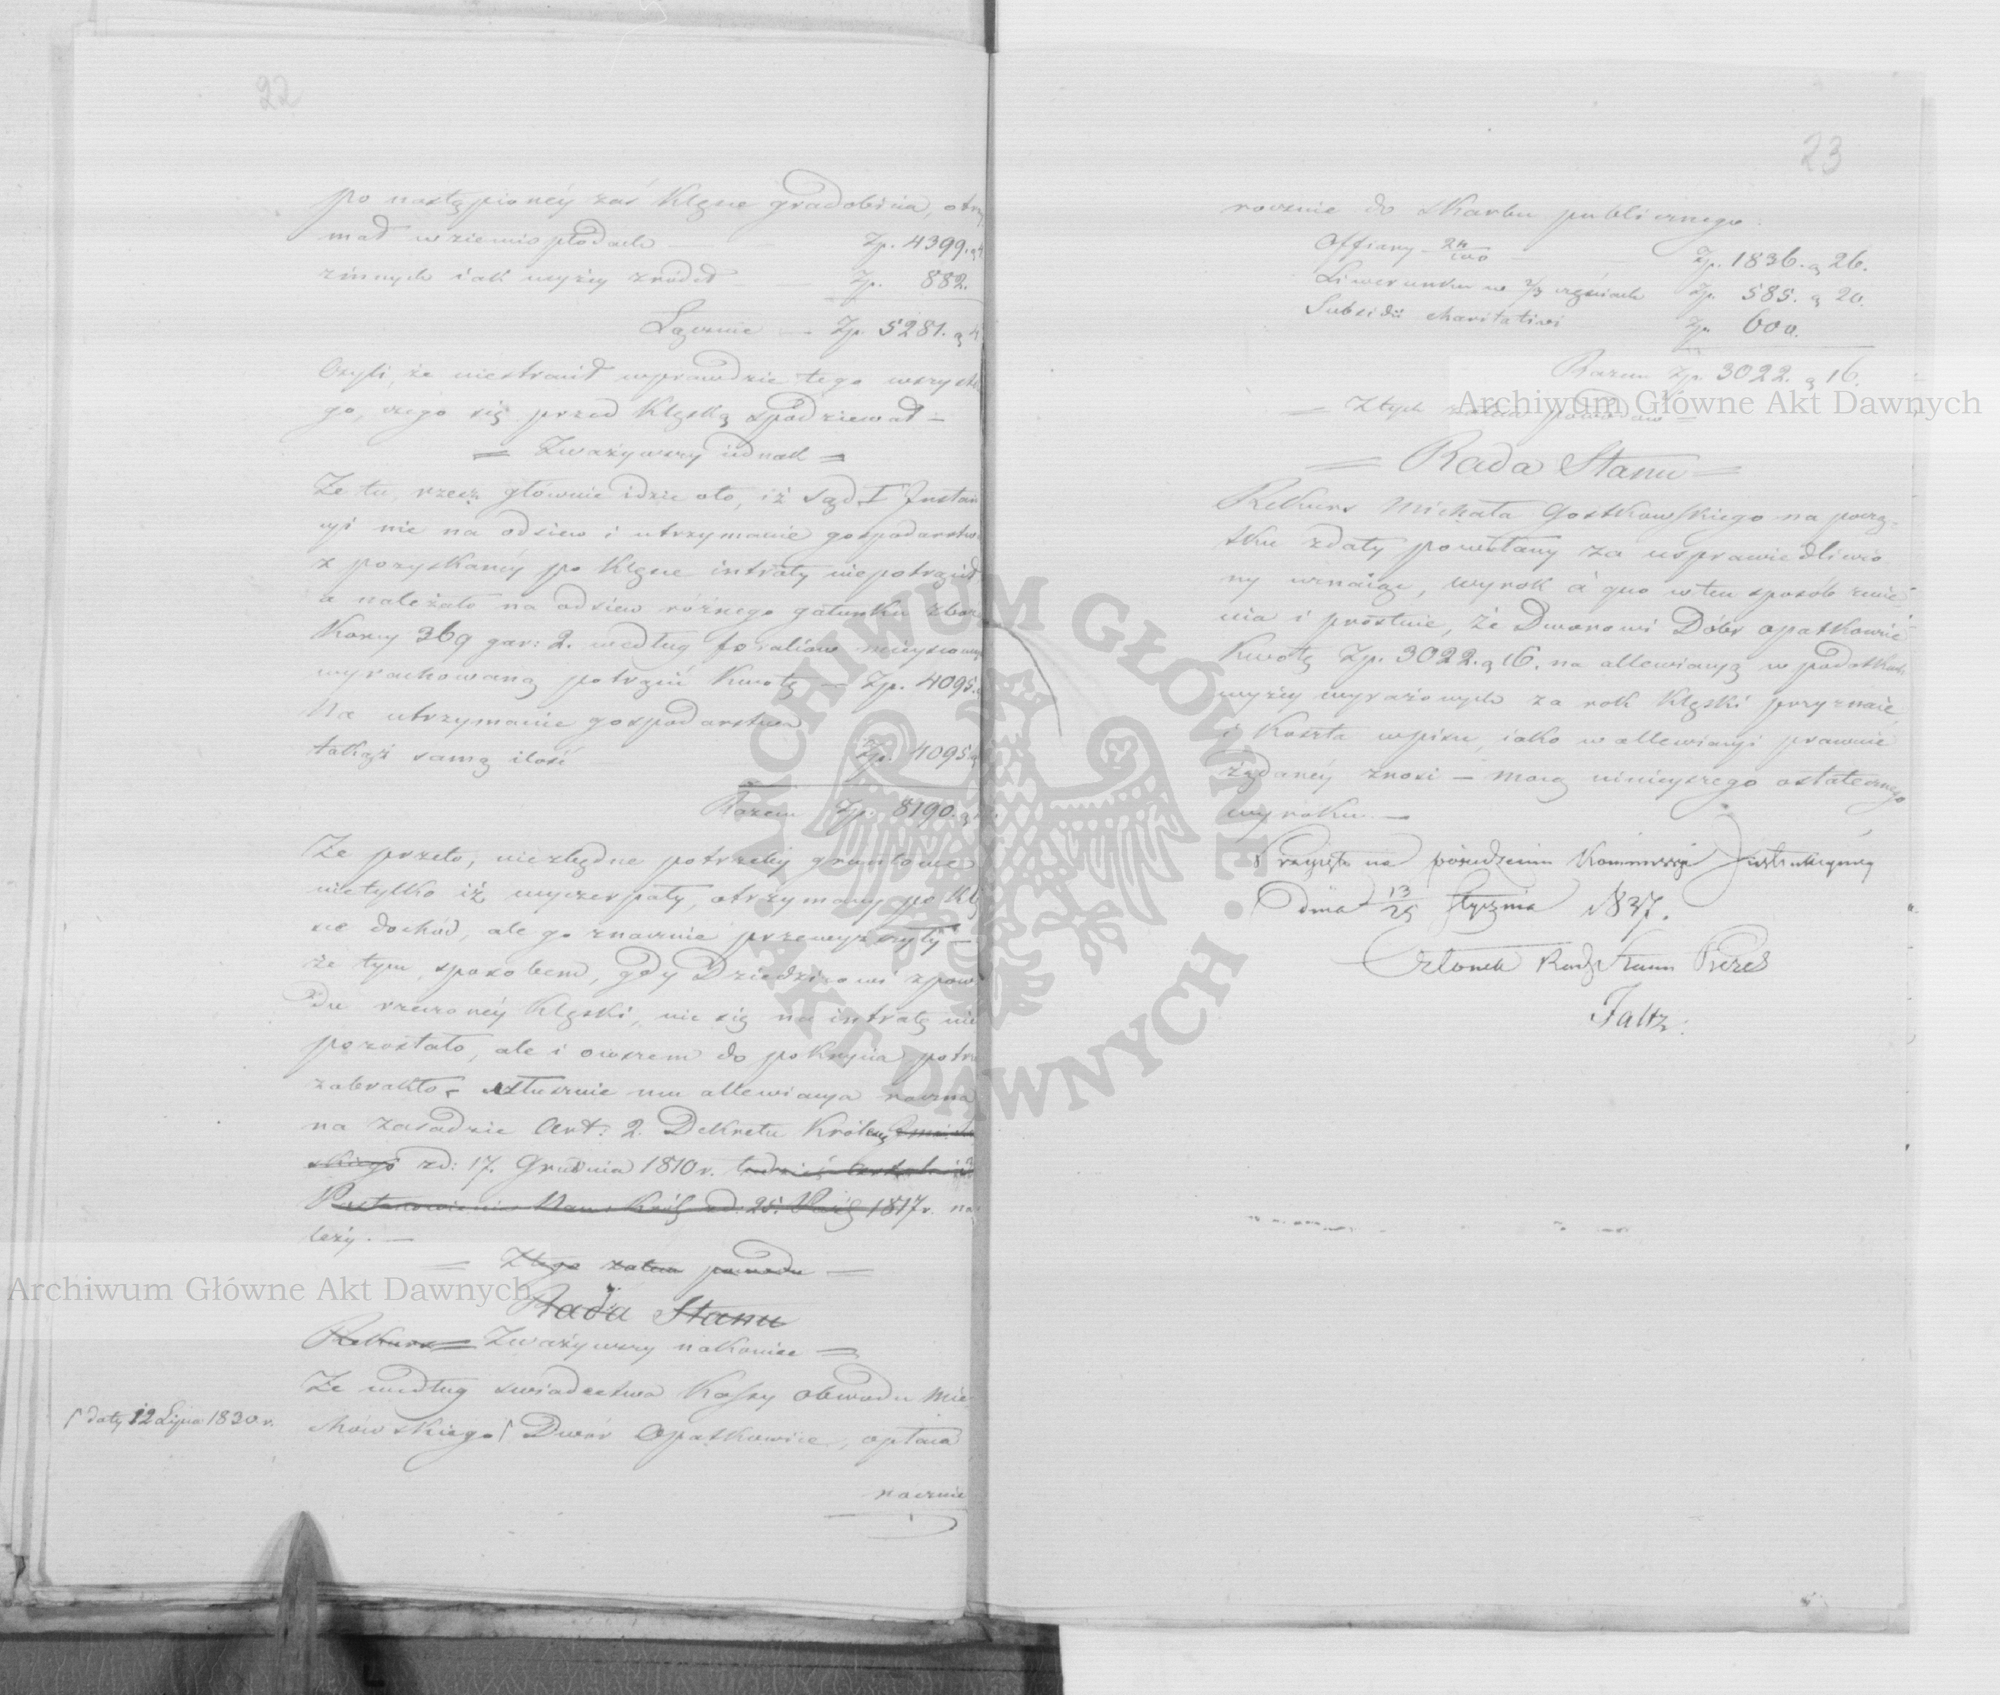 22
po nastąpionéy zaś klęsce gradobicia, otrzy
mał w ziemiopłodach — Zp. 4399. g
z innych iak wyżéy źródeł — Zp. 882.
Łącznie — Zp. 5281. g 4
Czyli, że niestracił wprawdzie tego wszystkie
go, czego się przed klęską spodziewał —
= Zważywszy iednak =
Że tu, rzecz głównie idzie oto, iż Sąd I Instan
cyi nie na odsiew i utrzymanie gospodarstwa
z pozyskanéy po klęsce intraty niepotrącił,
a należało na odsiew różnego gatunku zboża
Korcy 369 gar: 2. według foraliów mieyscowych
wyrachowaną potrącić kwotę — Zp. 4095. g
Na utrzymanie gospodarstwa
takąż samą ilość Zp. 4095 g
Razem Zp. 8190. g
Że przeto, niezbędne potrzeby gruntowe
nietylko iż wyczerpały, otrzymany po klę
sce dochód, ale go znacznie przewyższyły —
że tym sposobem, gdy Dziedzicowi z powo
du rzeczonéy klęski, nic się na intratę nie
pozostało, ale i owszem do pokrycia potrzeb
zabrakło — słusznie mu allewiacya roczna
na zasadzie Art: 2. Dekretu Królew
skiego z d: 17. Grudnia 1810 r.
Postanowienia Nam: Król z d: 25. Paźd 1817 r. na
leży. —
= Z tego zatem powodu =
Rada Stanu
Rekurs = Zważywszy nakoniec =
Że według świadectwa Kassy obwodu Mie
chowskiego ſ Dwór Opatkowice, opłaca
ſ daty 12 Lipca 1830 r.
rocznie
23
rocznie do skarbu publicznego:
Offiary 24/100 — Zp. 1836. g 26.
Liwerunku w 2/3 częściach Zp. 585. g 20.
Subsidii charitativi Zp. 600.
Razem Zp. 3022. g 16.
= Z tych zatem powodów =
= Rada Stanu =
Rekurs Michała Gostkowskiego na począ-
tku z daty powołany za usprawiedliwio
ny uznaiąc, wyrok à quo w ten sposób zmie
nia i prostuie, że Dworowi Dóbr Opatkowice
kwotę Zp. 3022. g 16. na allewiacyą w podatkach
wyżéy wyrażonych za rok klęski przyznaie,
i koszta wpisu, iako w allewiacyi prawnie
żądanéy znosi — mocą ninieyszego ostatecznego
wyroku. —
Przyięto na posiedzeniu Kommissyi Instrukcyinéy
dnia 13/25 Stycznia 1837.
Członek Rady Stanu Prezes
Faltz:
Archiwum Główne Akt Dawnych
Archiwum Główne Akt Dawnych
ARCHIWUM GŁÓWNE
AKT DAWNYCH